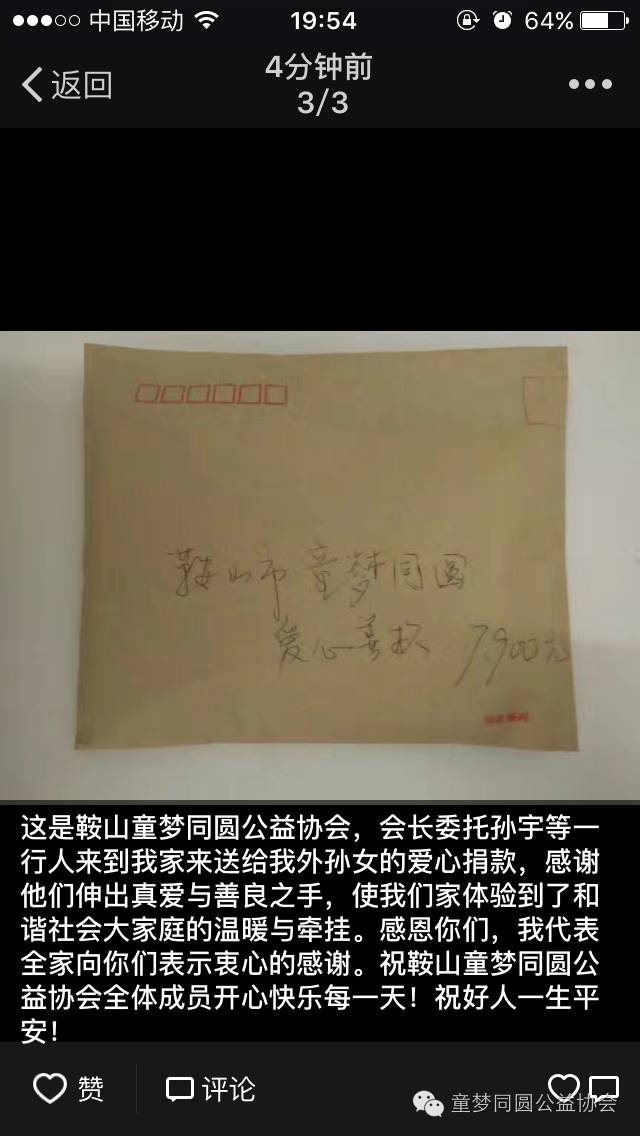 中国移动 19:54 64%
返回 4分钟前
3/3
鞍山市童梦同圆
爱心善款 7.900元
这是鞍山童梦同圆公益协会，会长委托孙宇等一
行人来到我家来送给我外孙女的爱心捐款，感谢
他们伸出真爱与善良之手，使我们家体验到了和
谐社会大家庭的温暖与牵挂。感恩你们，我代表
全家向你们表示衷心的感谢。祝鞍山童梦同圆公
益协会全体成员开心快乐每一天！祝好人一生平
安！
赞 评论
童梦同圆公益协会